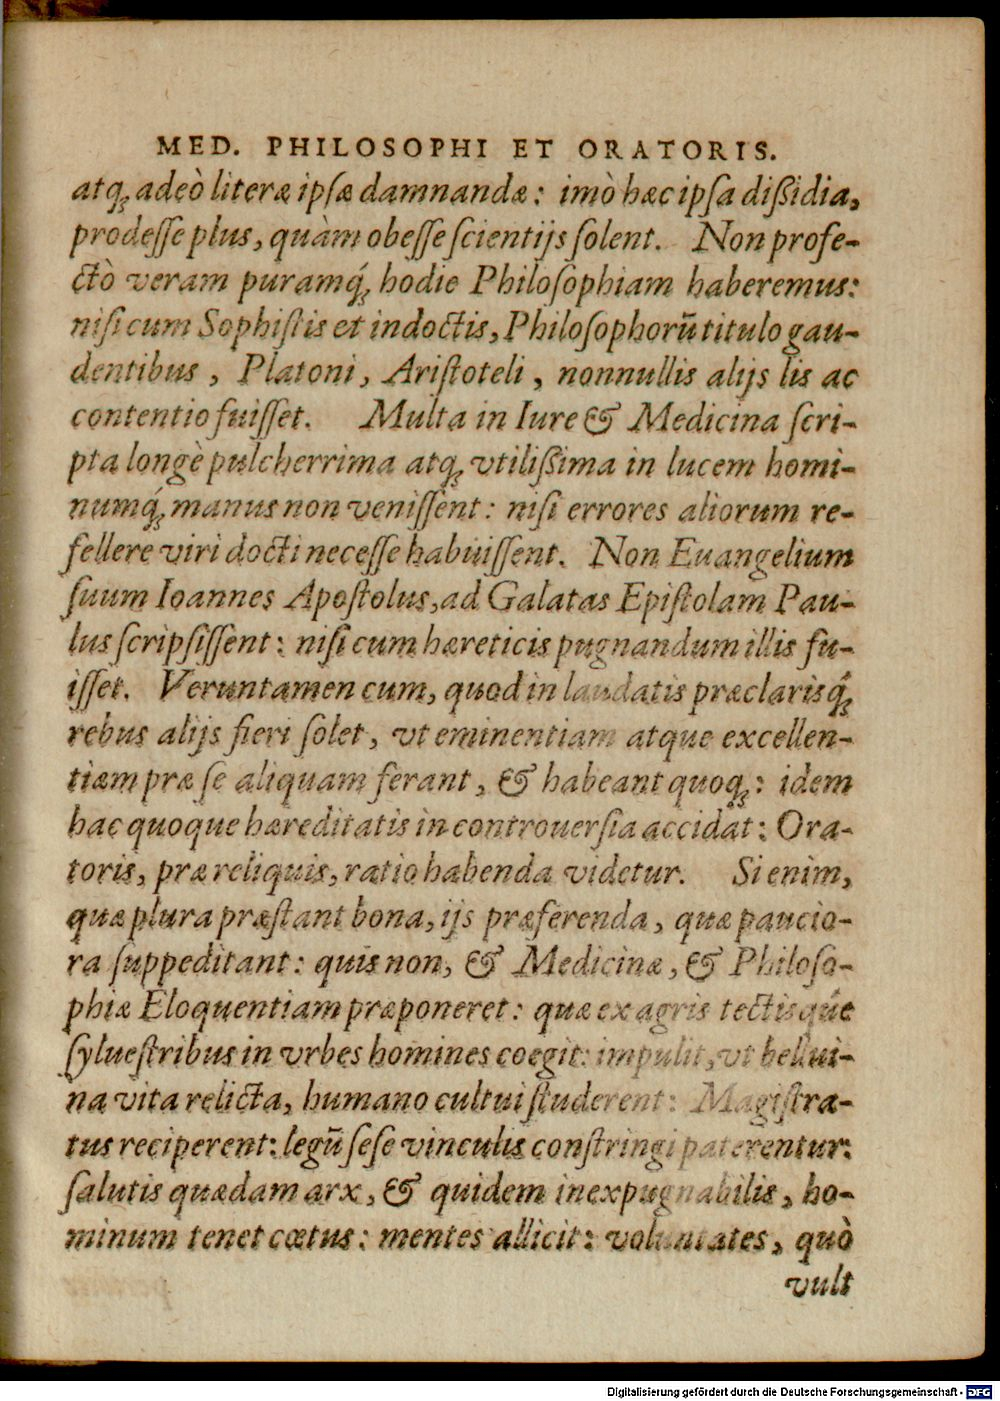 MED. PHILOSOPHI ET ORATORIS.
atq́; adeò literæ ipsæ damnandæ: imò hæc ipsa dißidia,
prodeſſe plus, quàm obeſſe ſcientijs ſolent. Non profe-
ctò veram puramq́; hodie Philoſophiam haberemus:
niſi cum Sophiſtis et indoctis, Philoſophorũ titulo gau-
dentibus, Platoni, Ariſtoteli, nonnullis alijs lis ac
contentio fuiſſet. Multa in Iure & Medicina ſcri-
pta longè pulcherrima atq; vtilißima in lucem homi-
numq́; manus non veniſſent: niſi errores aliorum re-
fellere viri docti neceſſe habuiſſent. Non Euangelium
ſuum Ioannes Apoſtolus, ad Galatas Epiſtolam Pau-
lus ſcripſiſſent: niſi cum hæreticis pugnandum illis fu-
iſſet. Veruntamen cum, quod in laudatis præclarisq́;
rebus alijs fieri ſolet, vt eminentiam atque excellen-
tiam præ ſe aliquam ferant, & habeant quoq;: idem
hac quoque hæreditatis in controuerſia accidat: Ora-
toris, præ reliquis, ratio habenda videtur. Si enim,
quæ plura præſtant bona, ijs præferenda, quæ paucio-
ra ſuppeditant: quis non, & Medicinæ, & Philoſo-
phiæ Eloquentiam præponeret: quæ ex agris tectisq́ue
ſylueſtribus in vrbes homines coegit: impulit, vt bellui-
na vita relicta, humano cultui ſtuderent: Magiſtra-
tus reciperent: legũ ſeſe vinculis conſtringi paterentur:
ſalutis quædam arx, & quidem inexpugnabilis, ho-
minum tenet cœtus: mentes allicit: voluntates, quò
vult
Digitalisierung gefördert durch die Deutsche Forschungsgemeinschaft - DFG